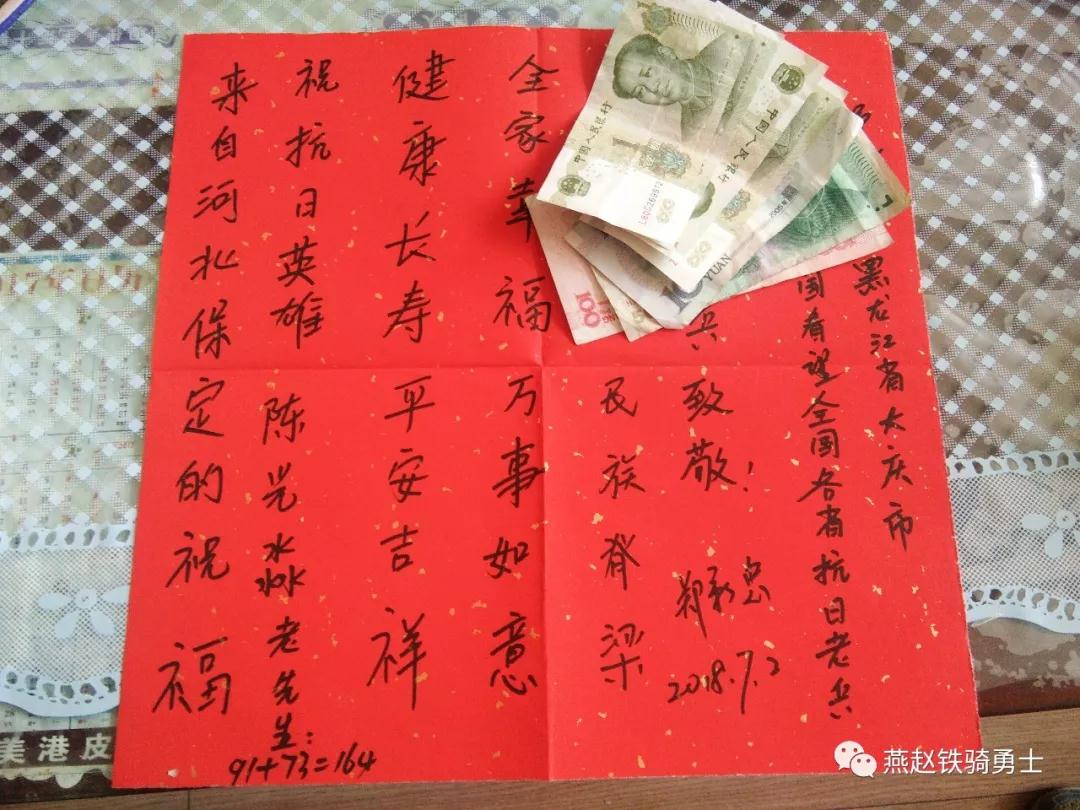 来自河北保定的祝福
祝抗日英雄陈淼老先生:
91+73=164
健康长寿平安吉祥
全家幸福万事如意
民族脊梁
兵致敬!
郑新忠
2018.7.2
国看望全国各省抗日老兵
黑龙江省大庆市
中国人民银行
1
中国人民银行
YUAN
100
美港皮
燕赵铁骑勇士